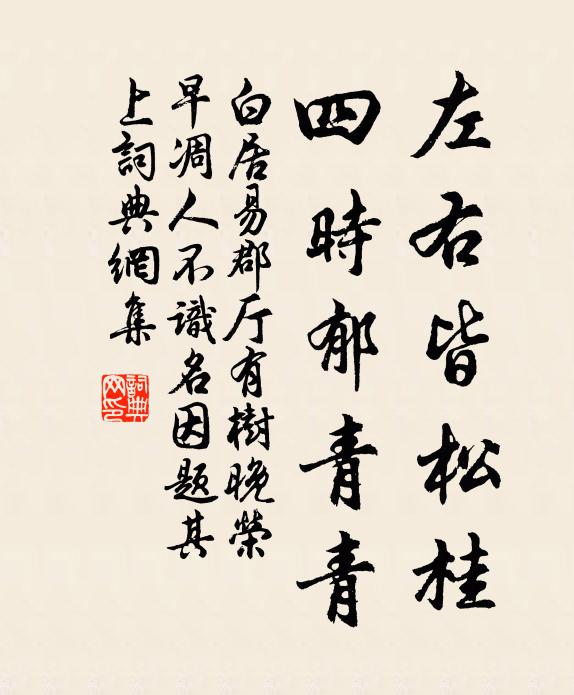 左右皆松桂
四時郁青青
白居易郡厅有樹晚榮
早凋人不識名因題其
上詞典網集
詞典网印